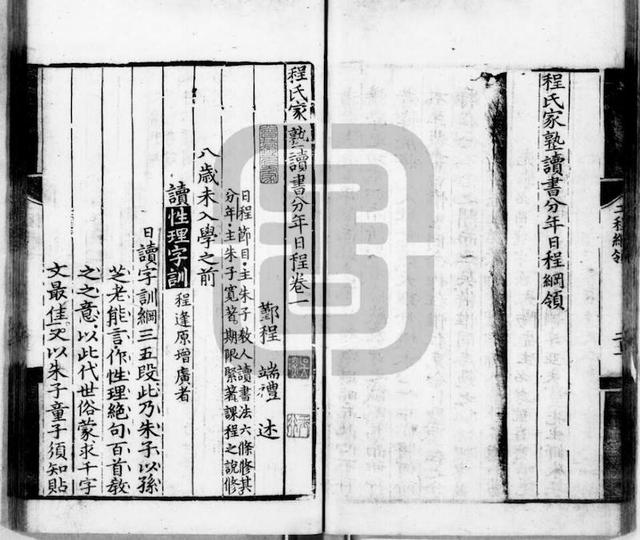 程氏家塾讀書分年日程綱領
程氏家塾讀書分年日程卷一
鄞程 端禮 述
日程節目主朱子教人讀書法六條修其
分年主朱子寬著期限緊著課程之說修
八歲未入學之前
讀性理字訓 程逢原增廣者
日讀字訓綱三五段此乃朱子以孫
芝老能言作性理絕句百首教
之之意以此代世俗蒙求千字
文最佳又以朱子童子須知貼